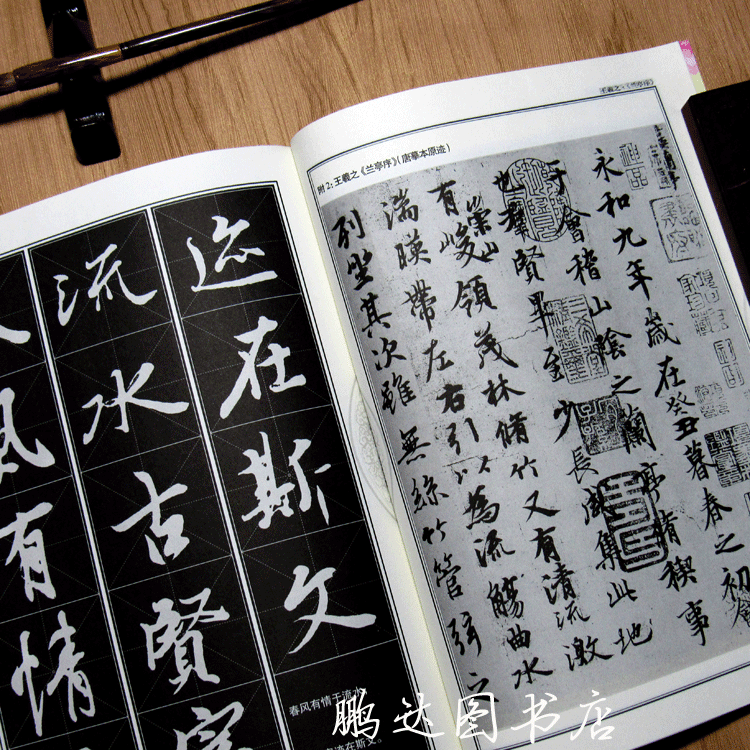 王羲之·《兰亭序》
附2:王羲之《兰亭序》(唐摹本原迹)
永和九年歲在癸丑暮春之初會
于會稽山陰之蘭亭脩稧事
也群賢畢至少長咸集此地
有崇山峻領茂林脩竹又有清流激
湍暎帶左右引以為流觴曲水
列坐其次雖無絲竹管弦之
迹在斯文
流水古賢
風有情
春风有情于流水
在斯文。
鹏达图书店